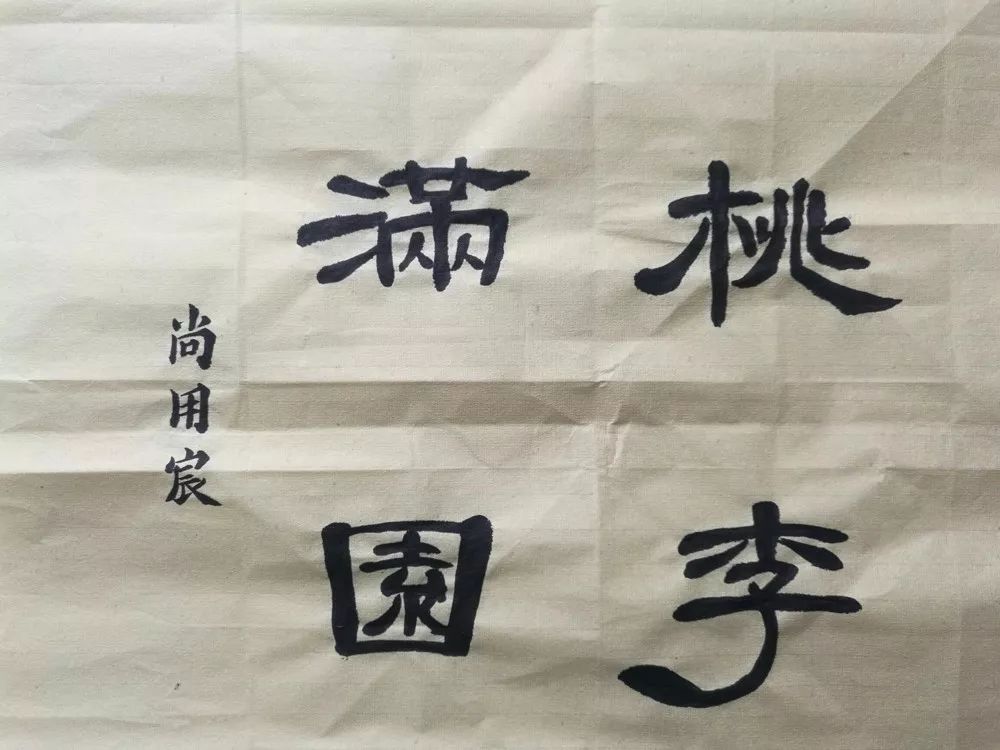 桃李
滿園
尚用宸